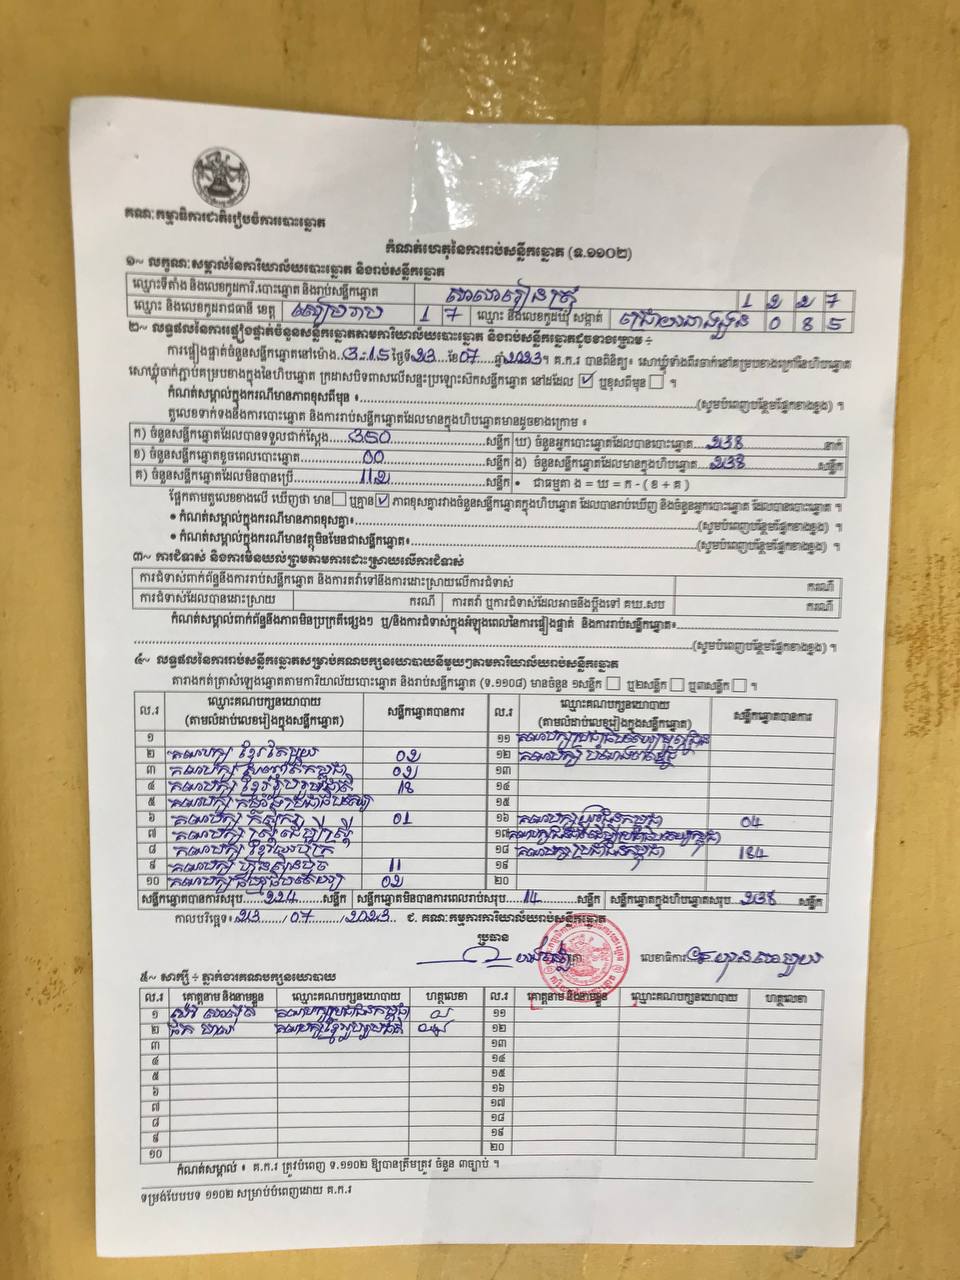 គណៈកម្មាធិការជាតិរៀបចំការបោះឆ្នោត
កំណត់ហេតុនៃការរាប់សន្លឹកឆ្នោត (ទ.១១០២)
១~ លក្ខណៈសម្គាល់នៃការិយាល័យបោះឆ្នោត និងរាប់សន្លឹកឆ្នោត
ឈ្មោះទីតាំង និងលេខកូដការិ.បោះឆ្នោត និងរាប់សន្លឹកឆ្នោត 1 2 2 7
ឈ្មោះ និងលេខកូដរាជធានី ខេត្ត សៀមរាប 1 7 ឈ្មោះ និងលេខកូដឃុំ សង្កាត់ 0 8 5
២~ លទ្ធផលនៃការផ្ទៀងផ្ទាត់ចំនួនសន្លឹកឆ្នោតតាមការិយាល័យបោះឆ្នោត និងរាប់សន្លឹកឆ្នោតដូចខាងក្រោម ÷
ការផ្ទៀងផ្ទាត់ចំនួនសន្លឹកឆ្នោតនៅម៉ោង 3:15 ថ្ងៃទី 23 ខែ 07 ឆ្នាំ 2023 ។ គ.ក.រ បានពិនិត្យ៖ សោឃ្មុំទាំងពីរចាក់នៅគម្របខាងក្រៅនៃហិបឆ្នោត
សោឃ្មុំចាក់ភ្ជាប់គម្របខាងក្នុងនៃហិបឆ្នោត ក្រដាសបិទពាសលើសន្ទះប្រឡោះសិកសន្លឹកឆ្នោត នៅដដែល ☑ ឬខុសពីមុន ☐ ។
កំណត់សម្គាល់ក្នុងករណីមានភាពខុសពីមុន ៖ (សូមបំពេញបន្ថែមផ្នែកខាងខ្នង) ។
តួលេខទាក់ទងនឹងការបោះឆ្នោត និងការរាប់សន្លឹកឆ្នោតដែលមានក្នុងហិបឆ្នោតមានដូចខាងក្រោម ៖
ក) ចំនួនសន្លឹកឆ្នោតដែលបានទទួលជាក់ស្តែង 350 សន្លឹក ឃ) ចំនួនអ្នកបោះឆ្នោតដែលបានបោះឆ្នោត 238 នាក់
ខ) ចំនួនសន្លឹកឆ្នោតខូចពេលបោះឆ្នោត 00 សន្លឹក ង) ចំនួនសន្លឹកឆ្នោតដែលមានក្នុងហិបឆ្នោត 238 សន្លឹក
គ) ចំនួនសន្លឹកឆ្នោតដែលមិនបានប្រើ 112 សន្លឹក • ជាធម្មតា ង = ឃ = ក - ( ខ + គ )
ផ្អែកតាមតួលេខខាងលើ ឃើញថា មាន ☐ ឬគ្មាន ☑ ភាពខុសគ្នារវាងចំនួនសន្លឹកឆ្នោតក្នុងហិបឆ្នោត ដែលបានរាប់ឃើញ និងចំនួនអ្នកបោះឆ្នោត ដែលបានបោះឆ្នោត ។
• កំណត់សម្គាល់ក្នុងករណីមានភាពខុសគ្នា៖ (សូមបំពេញបន្ថែមផ្នែកខាងខ្នង) ។
• កំណត់សម្គាល់ក្នុងករណីមានវត្ថុមិនមែនជាសន្លឹកឆ្នោត៖ (សូមបំពេញបន្ថែមផ្នែកខាងខ្នង) ។
៣~ ការជំទាស់ និងការមិនយល់ព្រមតាមការដោះស្រាយលើការជំទាស់
ការជំទាស់ពាក់ព័ន្ធនឹងការរាប់សន្លឹកឆ្នោត និងការតវ៉ាទៅនឹងការដោះស្រាយលើការជំទាស់ ករណី
ការជំទាស់ដែលបានដោះស្រាយ ករណី ការតវ៉ា ឬការជំទាស់ដែលអាចនឹងប្តឹងទៅ គឃ.សប ករណី
កំណត់សម្គាល់ពាក់ព័ន្ធនឹងភាពមិនប្រក្រតីផ្សេងៗ ឬ/និងការជំទាស់ក្នុងអំឡុងពេលនៃការផ្ទៀងផ្ទាត់ និងការរាប់សន្លឹកឆ្នោត៖
(សូមបំពេញបន្ថែមផ្នែកខាងខ្នង) ។
៤~ លទ្ធផលនៃការរាប់សន្លឹកឆ្នោតសម្រាប់គណបក្សនយោបាយនីមួយៗតាមការិយាល័យរាប់សន្លឹកឆ្នោត
តារាងកត់ត្រាសំឡេងឆ្នោតតាមការិយាល័យបោះឆ្នោត និងរាប់សន្លឹកឆ្នោត (ទ.១១០៨) មានចំនួន ១សន្លឹក ☐ ឬ២សន្លឹក ☐ ឬ៣សន្លឹក ☐ ។
ល.រ ឈ្មោះគណបក្សនយោបាយ (តាមលំដាប់លេខរៀងក្នុងសន្លឹកឆ្នោត) សន្លឹកឆ្នោតបានការ ល.រ ឈ្មោះគណបក្សនយោបាយ (តាមលំដាប់លេខរៀងក្នុងសន្លឹកឆ្នោត) សន្លឹកឆ្នោតបានការ
១ ១១
២ គណបក្ស ខ្មែរតែមួយ 02 ១២
៣ 02 ១៣
៤ គណបក្ស ខ្មែររួបរួមជាតិ 18 ១៤
៥ ១៥
៦ 01 ១៦ គណបក្ស យុវជនកម្ពុជា 04
៧ គណបក្ស ស្ត្រីដើម្បីស្ត្រី ១៧
៨ ១៨ គណបក្ស ប្រជាជនកម្ពុជា 184
៩ គណបក្ស ហ្វ៊ុនស៊ិនប៉ិច 11 ១៩
១០ 02 ២០
សន្លឹកឆ្នោតបានការសរុប 224 សន្លឹក សន្លឹកឆ្នោតមិនបានការពេលរាប់សរុប 14 សន្លឹក សន្លឹកឆ្នោតក្នុងហិបឆ្នោតសរុប 238 សន្លឹក
កាលបរិច្ឆេទ៖ 23 / 07 / 2023 ជ. គណៈកម្មការការិយាល័យរាប់សន្លឹកឆ្នោត
ប្រធាន
លេខាធិការ
៥~ សាក្សី ÷ ភ្នាក់ងារគណបក្សនយោបាយ
ល.រ គោត្តនាម និងនាមខ្លួន ឈ្មោះគណបក្សនយោបាយ ហត្ថលេខា ល.រ គោត្តនាម និងនាមខ្លួន ឈ្មោះគណបក្សនយោបាយ ហត្ថលេខា
១ គណបក្សប្រជាជនកម្ពុជា ១១
២ គណបក្សខ្មែររួបរួមជាតិ ១២
៣ ១៣
៤ ១៤
៥ ១៥
៦ ១៦
៧ ១៧
៨ ១៨
៩ ១៩
១០ ២០
កំណត់សម្គាល់ ៖ គ.ក.រ ត្រូវបំពេញ ទ.១១០២ ឱ្យបានត្រឹមត្រូវ ចំនួន ៣ច្បាប់ ។
ទម្រង់បែបបទ ១១០២ សម្រាប់បំពេញដោយ គ.ក.រ